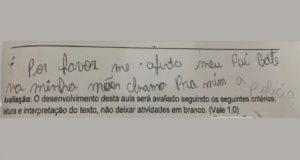 Por favor me ajuda meu Pai Bate
na minha mãe chama Pra mim a Policia
Avaliação: O desenvolvimento desta aula será avaliado seguindo os seguintes critérios:
leitura e interpretação do texto, não deixar atividades em branco. (Vale 1,0)